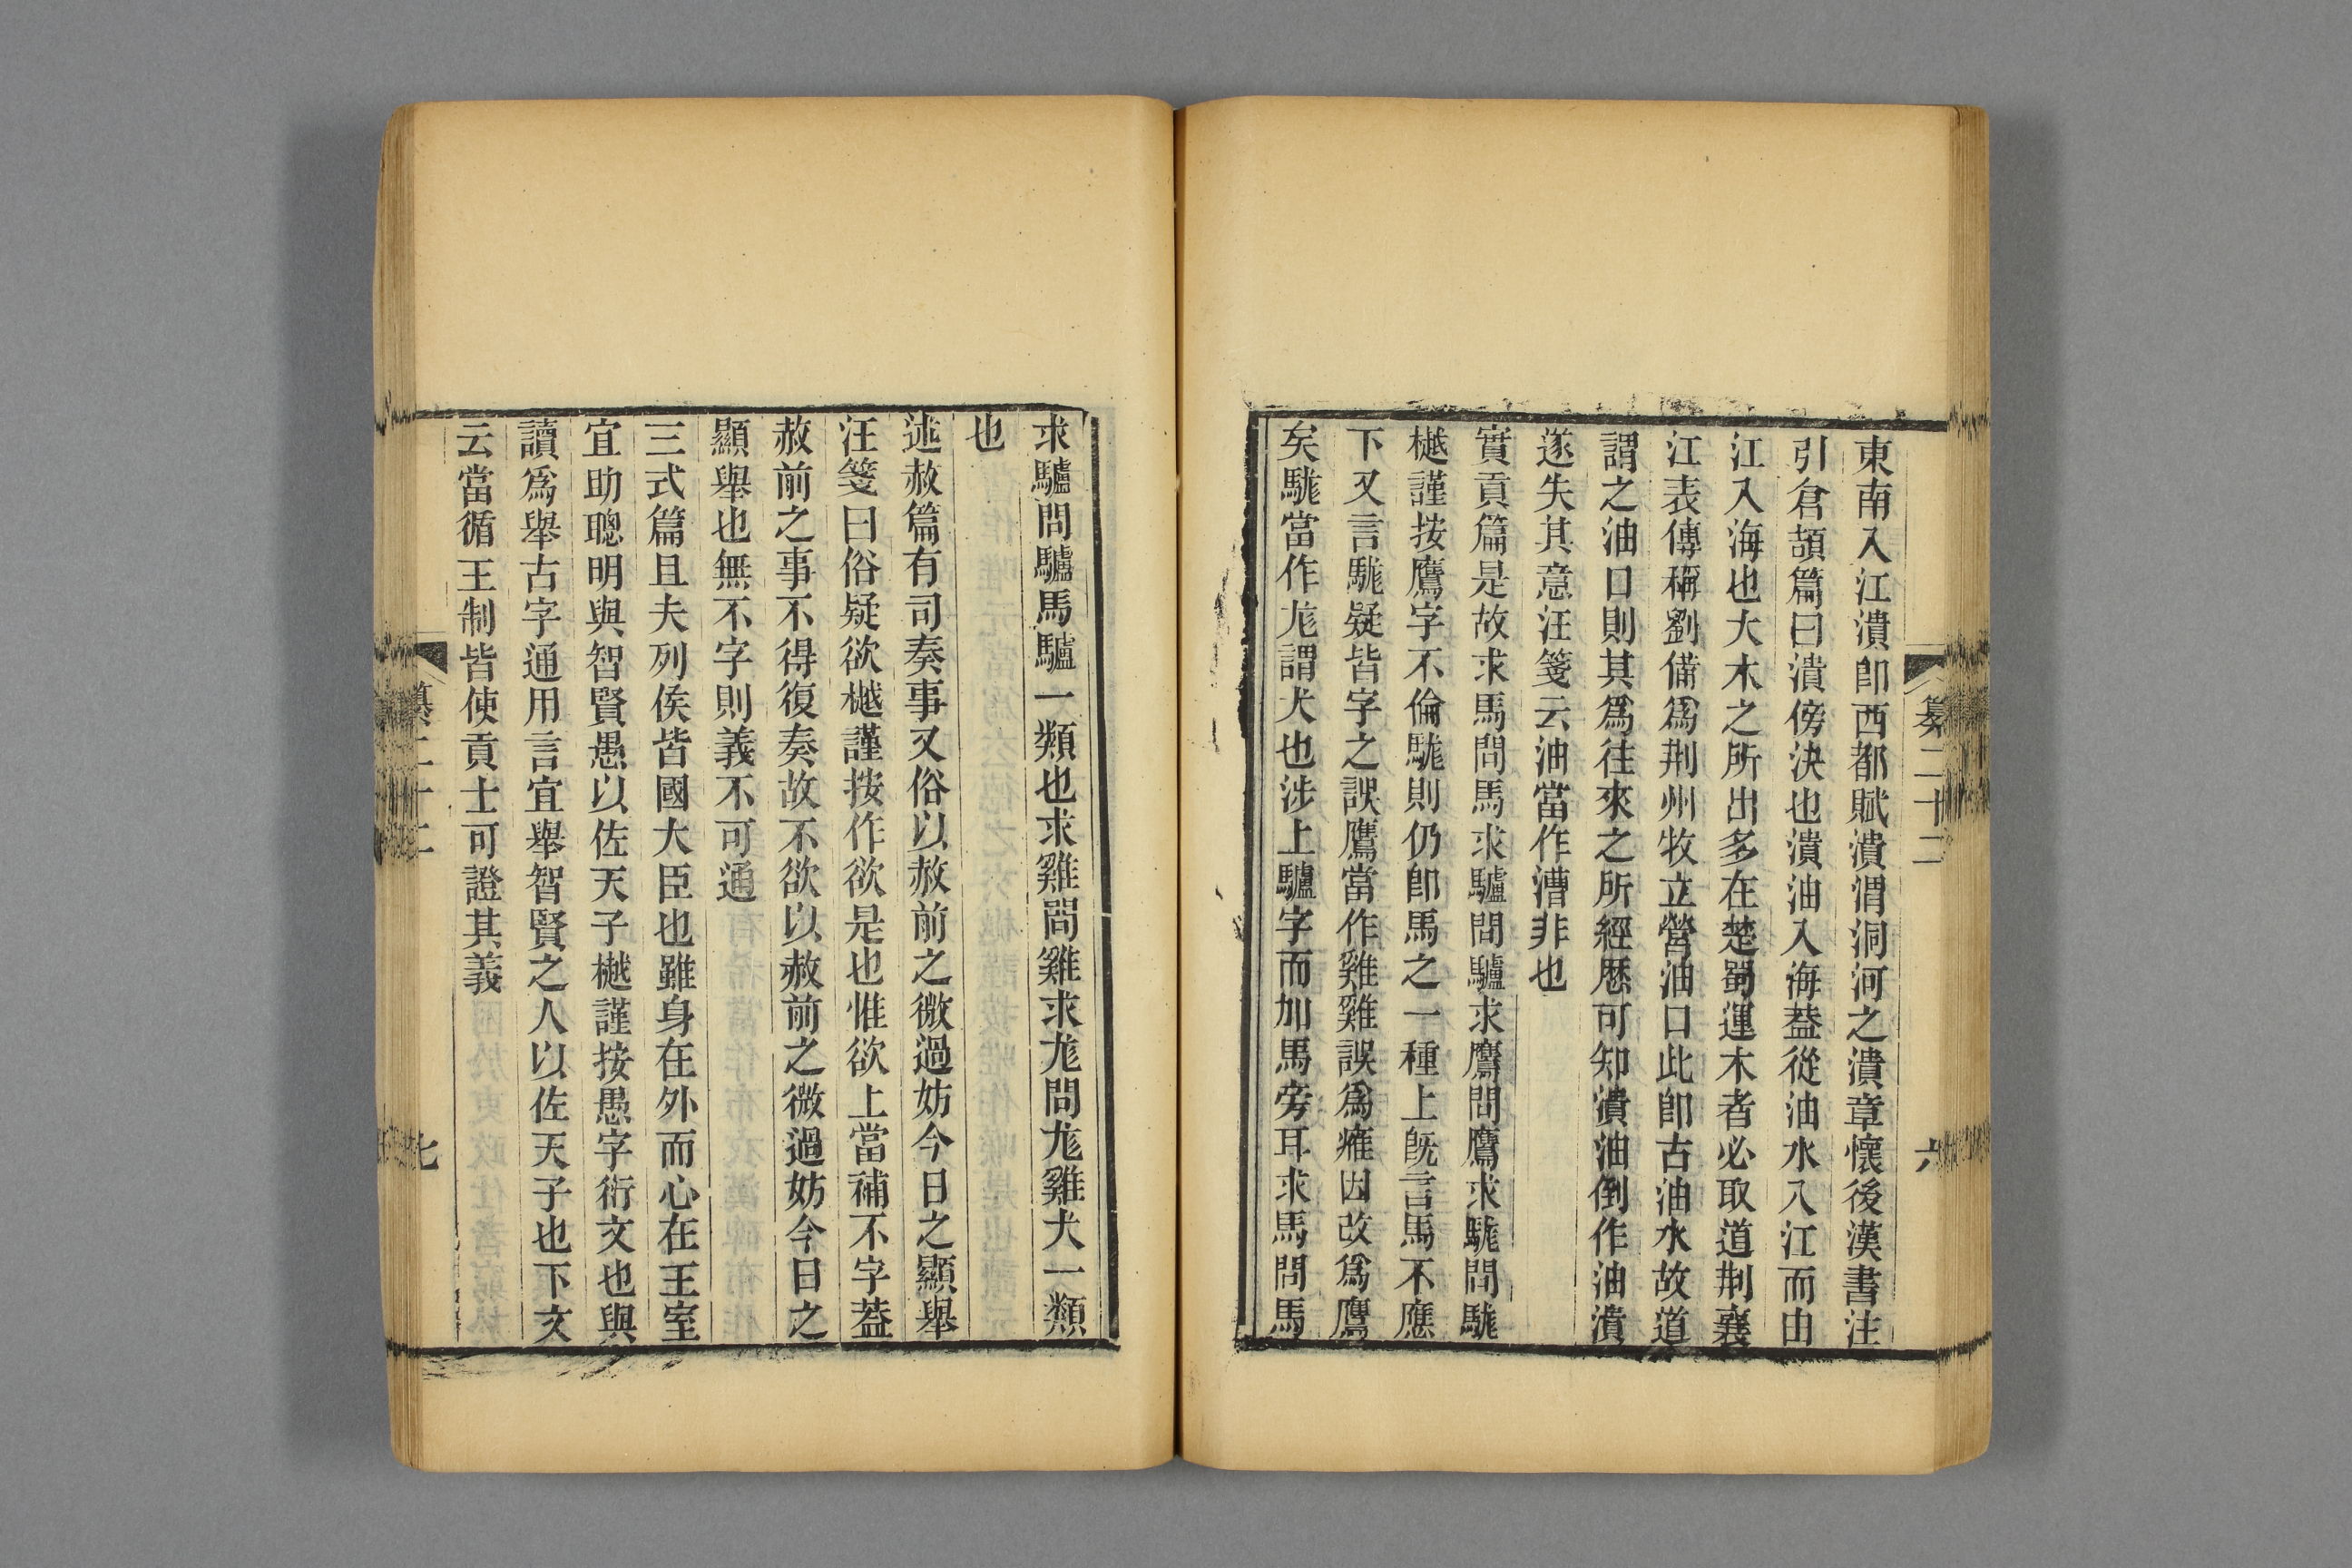 東南入江潰卽西都賦潰渭洞河之潰章懷後漢書注
引倉頡篇曰潰傍決也潰油入海葢從油水入江而由
江入海也大木之所出多在楚蜀運木者必取道荆襄
江表傳稱劉備爲荆州牧立營油口此卽古油水故道
謂之油口則其爲往來之所經歷可知潰油倒作油潰
遂失其意汪箋云油當作漕非也
實貢篇是故求馬問馬求驢問驢求鷹問鷹求駹問駹
樾謹按鷹字不倫駹則仍卽馬之一種上旣言馬不應
下又言駹疑皆字之誤鷹當作雞雞誤爲癰因改爲鷹
矣駹當作尨謂犬也涉上驢字而加馬旁耳求馬問馬
纂二十二
六
求驢問驢馬驢一類也求雞問雞求尨問尨雞犬一類
也
述赦篇有司奏事又俗以赦前之微過妨今日之顯舉
汪箋曰俗疑欲樾謹按作欲是也惟欲上當補不字葢
赦前之事不得復奏故不欲以赦前之微過妨今日之
顯舉也無不字則義不可通
三式篇且夫列侯皆國大臣也雖身在外而心在王室
宜助聰明與智賢愚以佐天子樾謹按愚字衍文也與
讀爲舉古字通用言宜舉智賢之人以佐天子也下文
云當循王制皆使貢士可證其義
纂二十二
七